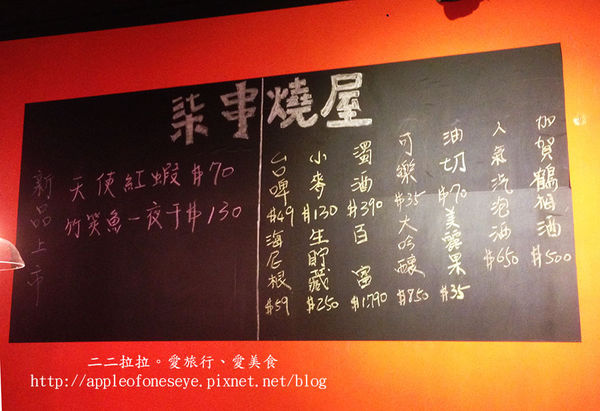 柒串燒屋
新品上市
天使紅蝦 $70
竹筴魚一夜干 $130
加賀鶴梅酒 $500
人氣汽泡酒 $650
油切 $70 美麗果 $35
可樂 $35 大吟釀 $850
濁酒 $390 百富 $1790
小麥 $130 生貯藏 $250
台啤 $49 海尼根 $59
二二拉拉。愛旅行、愛美食
http://appleofoneseye.pixnet.net/blog